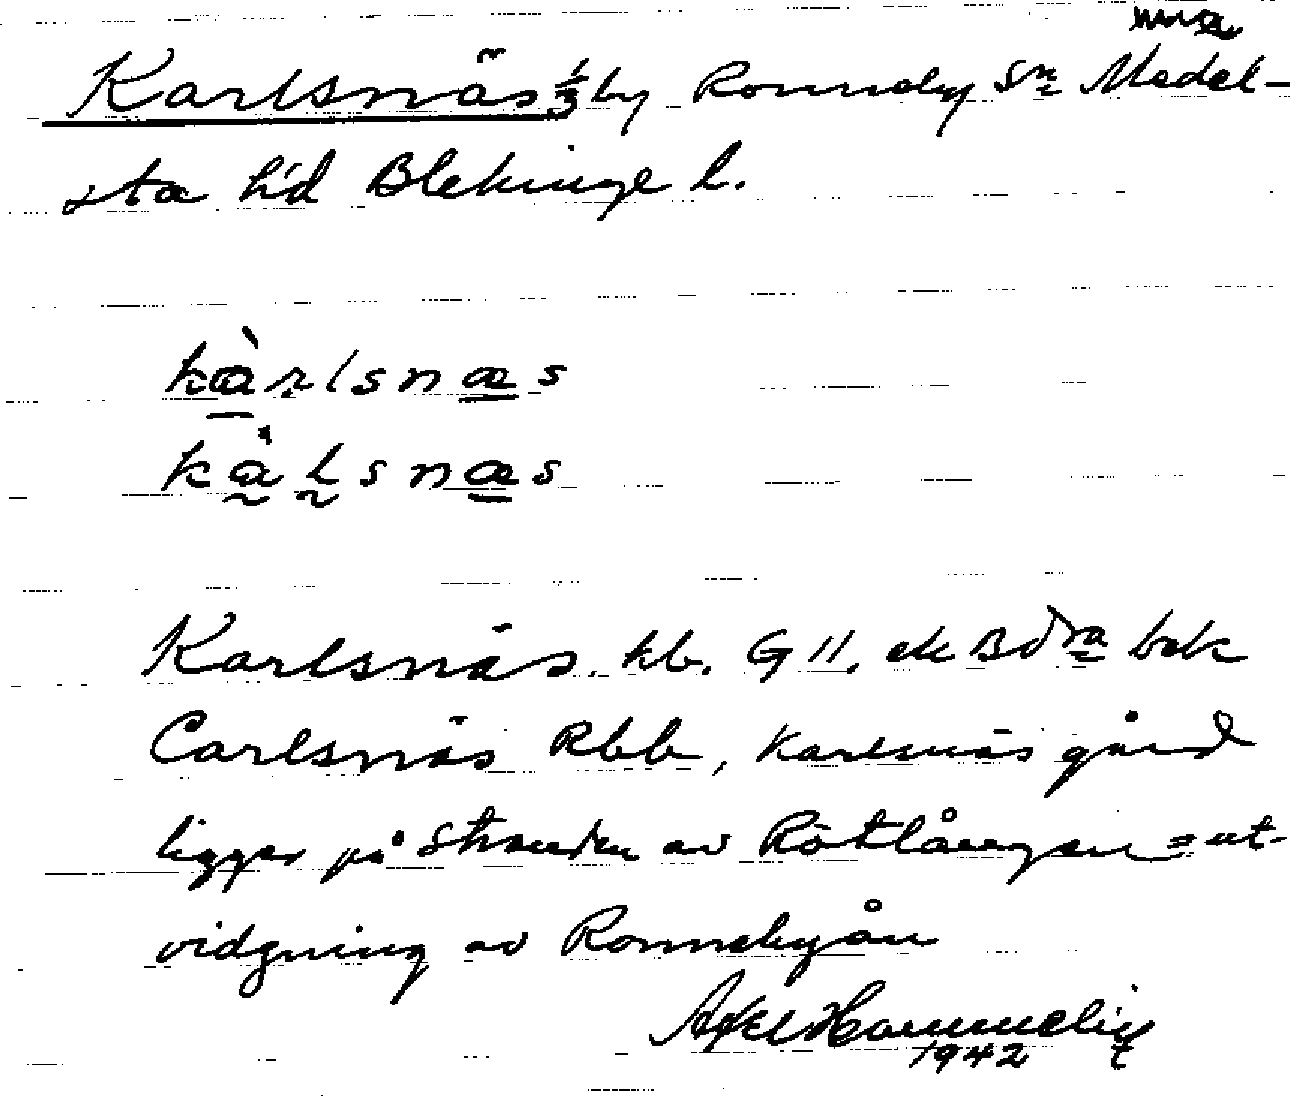 Karlsnäs ½ by Ronneby Sn Medel-
sta h'd Blekinge l.
kàrlsnæs
kàlsnæs
Karlsnäs. hb. G II. ek bok
Carlsnäs Rbb, Karlsnäs gård
ligger på stranden av Rötlången = ut-
vidgning av Ronnebyån
Axel Hammelin
1942